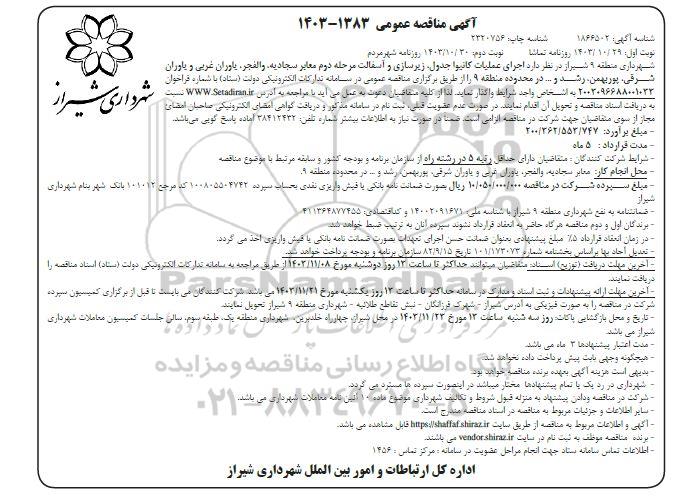 آگهی مناقصه عمومی ۱۳۸۳-۱۴۰۳
شناسه آگهی: ۱۸۶۶۵۰۲ شناسه چاپ: ۲۳۲۰۷۵۶
نوبت اول: ۱۴۰۳/۱۰/۲۹ روزنامه تماشا نوبت دوم: ۱۴۰۳/۱۰/۳۰ روزنامه شهرمردم
شهرداری شیراز
شهرداری منطقه ۹ شیراز در نظر دارد اجرای عملیات کانیوا جدول، زیرسازی و آسفالت مرحله دوم معابر سجادیه، والفجر، یاوران غربی و یاوران
شرقی، پوربهمن، رشد و ... در محدوده منطقه ۹ را از طریق برگزاری مناقصه عمومی در سامانه تدارکات الکترونیکی دولت (ستاد) با شماره فراخوان
۲۰۰۲۰۹۶۶۸۸۰۰۱۰۲۳ به اشخاص واجد شرایط واگذار نماید. لذا از کلیه متقاضیان دعوت به عمل می آید با مراجعه به آدرس WWW.Setadiran.ir نسبت
به دریافت اسناد مناقصه و تحویل آن اقدام نمایند. در صورت عدم عضویت قبلی، ثبت نام در سامانه مذکور و دریافت گواهی امضای الکترونیکی صاحبان امضای
مجاز از سوی متقاضیان جهت شرکت در مناقصه الزامی است. ضمنا در صورت نیاز به اطلاعات بیشتر شماره تلفن: ۳۸۴۱۲۴۳۲ آماده پاسخ گویی می‌باشد.
- مبلغ برآورد: ۲۰۰/۳۶۲/۵۵۳/۷۴۷
- مدت قرارداد : ۵ ماه
- شرایط شرکت کنندگان : متقاضیان دارای حداقل رتبه ۵ در رشته راه از سازمان برنامه و بودجه کشور و سابقه مرتبط با موضوع مناقصه
- محل انجام کار: معابر سجادیه، والفجر، یاوران غربی و یاوران شرقی، پوربهمن، رشد و ... در محدوده منطقه ۹.
- مبلغ سپرده شرکت در مناقصه ۱۰/۰۵۰/۰۰۰/۰۰۰ ریال بصورت ضمانت نامه بانکی یا فیش واریزی نقدی بحساب سپرده ۱۰۰۸۰۵۵۰۴۷۴۲ کد مرجع ۱۰۱۰۱۲ بانک شهر بنام شهرداری
شیراز
- ضمانتنامه به نفع شهرداری منطقه ۹ شیراز با شناسه ملی: ۱۴۰۰۲۰۹۱۶۷۱ و کداقتصادی: ۴۱۱۳۶۴۸۷۷۴۵۵
- برندگان اول و دوم مناقصه هرگاه حاضر به انعقاد قرارداد نشوند سپرده آنان به ترتیب ضبط خواهد شد.
- در زمان انعقاد قرارداد ۵٪ مبلغ پیشنهادی بعنوان ضمانت حسن اجرای تعهدات بصورت ضمانت نامه بانکی یا فیش واریزی اخذ می گردد.
- تعدیل آحاد بها براساس بخشنامه شماره ۱۰۱/۱۷۳۰۷۳ تاریخ ۸۲/۹/۱۵ سازمان برنامه و بودجه پرداخت خواهد شد.
- آخرین مهلت دریافت (توزیع) اسناد: متقاضیان میتوانند حداکثر تا ساعت ۱۳ روز دوشنبه مورخ ۱۴۰۳/۱۱/۰۸ از طریق مراجعه به سامانه تدارکات الکترونیکی دولت (ستاد) اسناد مناقصه را
دریافت نمایند.
- آخرین مهلت ارائه پیشنهادات و ثبت اسناد و مدارک در سامانه حداکثر تا ساعت ۱۳ روز یکشنبه مورخ ۱۴۰۳/۱۱/۲۱ می باشد. شرکت کنندگان می بایست تا قبل از برگزاری کمیسیون سپرده
شرکت در مناقصه را به صورت فیزیکی به آدرس شیراز - شهرک فرزانگان - نبش تقاطع طلائیه - شهرداری منطقه ۹ شیراز تحویل نمایند.
- تاریخ و محل بازگشایی پاکات: روز سه شنبه ساعت ۱۳ مورخ ۱۴۰۳/۱۱/۲۳ در محل شیراز، چهارراه خلدبرین، شهرداری منطقه یک، طبقه سوم، سالن جلسات کمیسیون معاملات شهرداری
شیراز می باشد.
- مدت اعتبار پیشنهادها ۳ ماه می باشد.
- هیچگونه وجهی بابت پیش پرداخت داده نخواهد شد.
- بدیهی است هزینه آگهی بعهده برنده مناقصه خواهد بود.
- شهرداری در رد یک یا تمام پیشنهادها مختار میباشد در اینصورت سپرده ها مسترد می گردد.
- شرکت در مناقصه ودادن پیشنهاد به منزله قبول شروط و تکالیف شهرداری موضوع ماده ۱۰ آئین نامه معاملات شهرداری می باشد.
- سایر اطلاعات و جزئیات مربوط به مناقصه در اسناد مناقصه مندرج است.
- آگهی و اطلاعات مربوط به مناقصه از طریق سایت https://shaffaf.shiraz.ir قابل مشاهده می باشد.
- برنده مناقصه موظف به ثبت نام در سایت vendor.shiraz.ir می باشند.
- اطلاعات تماس سامانه ستاد جهت انجام مراحل عضویت در سامانه : مرکز تماس : ۱۴۵۶
اداره کل ارتباطات و امور بین الملل شهرداری شیراز
پایگاه اطلاع رسانی مناقصه و مزایده
۰۲۱-۸۸۳۴۹۶۷۰-۵